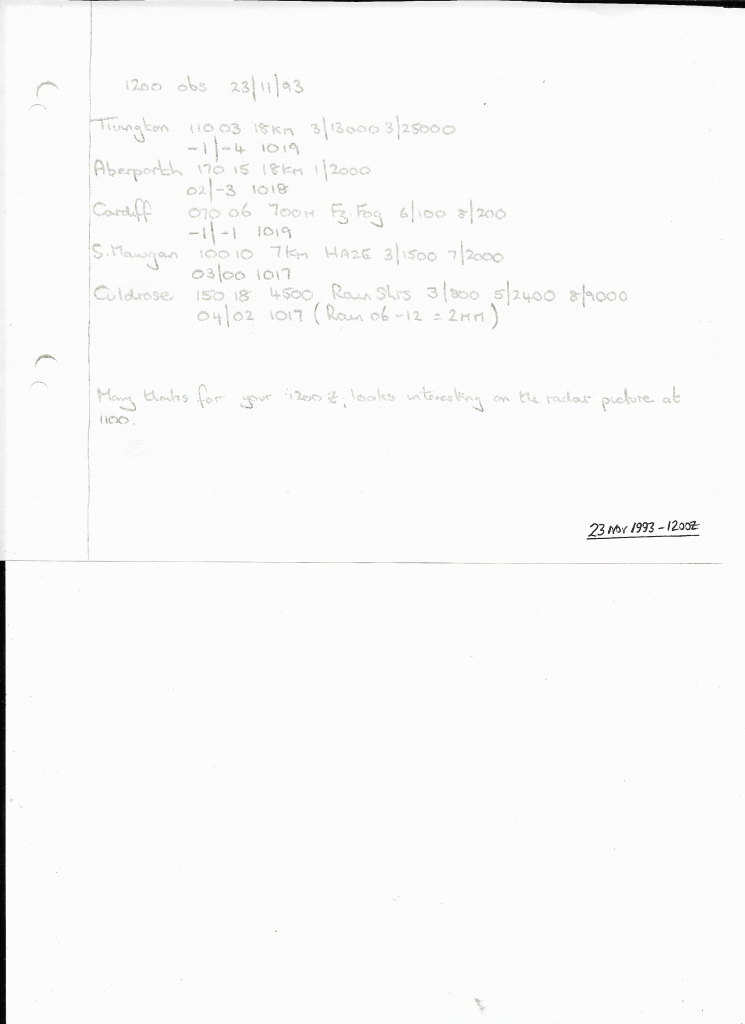 1200 obs 23/11/93
Tivington 110 03 18KM 3/13000 3/25000
-1/-4 1019
Aberporth 170 15 18KM 1/2000
02/-3 1018
Cardiff 070 06 700M Fz.Fog 6/100 8/200
-1/-1 1019
S.Mawgan 100 10 7KM HAZE 3/1500 7/2000
03/00 1017
Culdrose 150 18 4500 Rain Shrs 3/800 5/2400 8/9000
04/02 1017 (Rain 06-12 = 2MM)
Many thanks for your 1200Z, looks interesting on the radar picture at
1100.
23 Nov 1993 - 1200Z